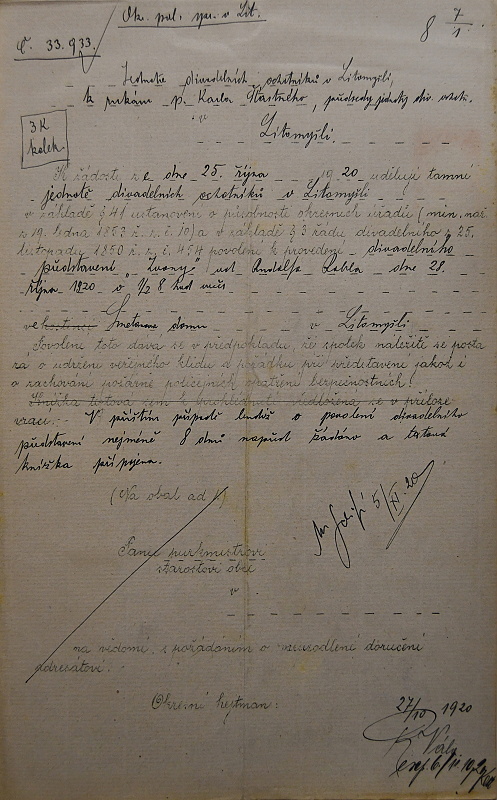 Ok. pol. spr. v Lit.
8 7/1.
Č. 33.933.
Jednotě divadelních ochotníků v Litomyšli,
k rukám p. Karla Šťastného, předsedy jednoty div. ochot.
v
Litomyšli.
3 K
kolek.
K žádosti ze dne 25. října 1920 uděluji tamní
jednotě divadelních ochotníků v Litomyšli
v základě § 41 ustanovení o působnosti okresních úřadů (min. nař.
z 19. ledna 1853 ř. z. č. 10) a v základě § 3 řádu divadelního z 25.
listopadu 1850 ř. z. č. 454 povolení k provedení divadelního
představení „Zvony" od Rudolfa dne 28.
října 1920 o 1/2 8 hod več
ve hostinci Smetanově domu v Litomyšli
Povolení toto dává se v předpokladu, že spolek náležitě se postará
za o udržení veřejného klidu a pořádku při představení jakož i
o zachování požárně policejních opatření bezpečnostních.
Knížka tatová sem k nahlédnutí předložená se v příloze
vrací. V příštím případě budiž o povolení divadelního
představení nejméně 8 dnů napřed žádáno a tatová
knížka připojena.
(Na obal ad 1)
5/XI 20
Panu purkmistrovi
starostovi obce
v
na vědomí s požádáním o neprodlené doručení
adresátovi.
Okresní hejtman:
27/10 1920